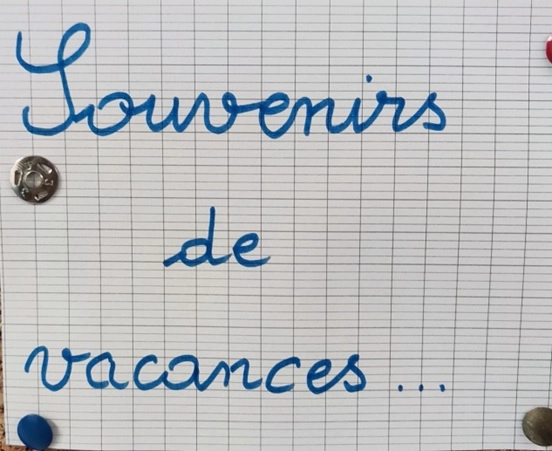 Souvenirs
de
vacances...